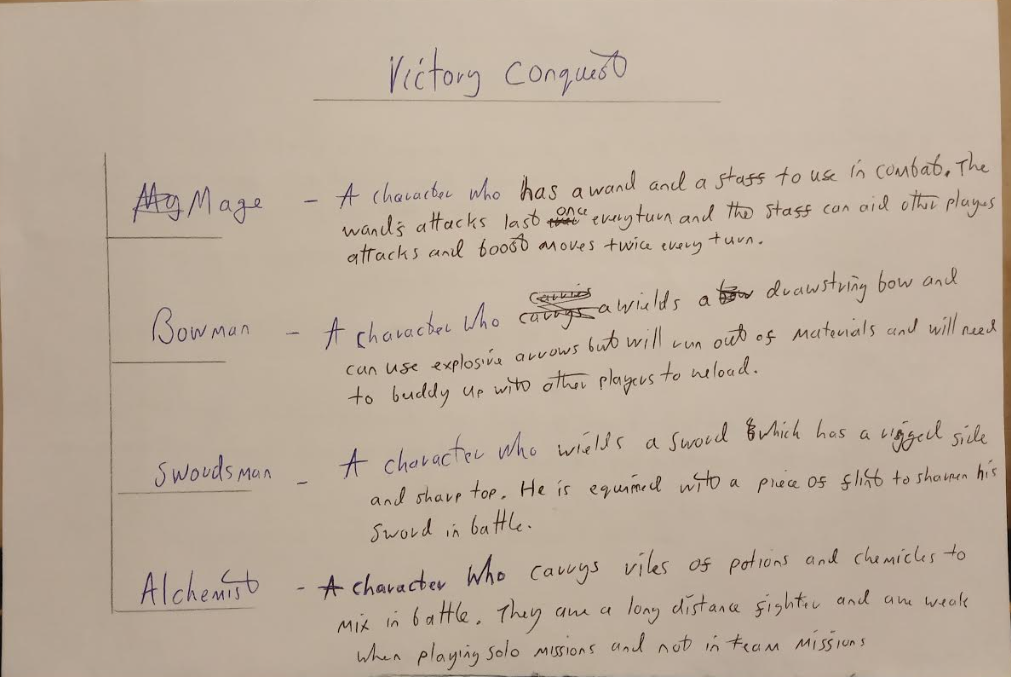 Victory Conquest
Mage - A character who has a wand and a staff to use in combat. The
wands attacks last once every turn and the staff can aid other players
attacks and boost moves twice every turn.
Bowman - A character who a wields a drawstring bow and
can use explosive arrows but will run out of materials and will need
to buddy up with other players to reload.
Swordsman - A character who wields a sword which has a rigged side
and sharp top. He is equipped with a piece of flint to sharpen his
sword in battle.
Alchemist - A character who carrys viles of potions and chemicles to
mix in battle. They are a long distance fighter and are weak
when playing solo missions and not in team missions